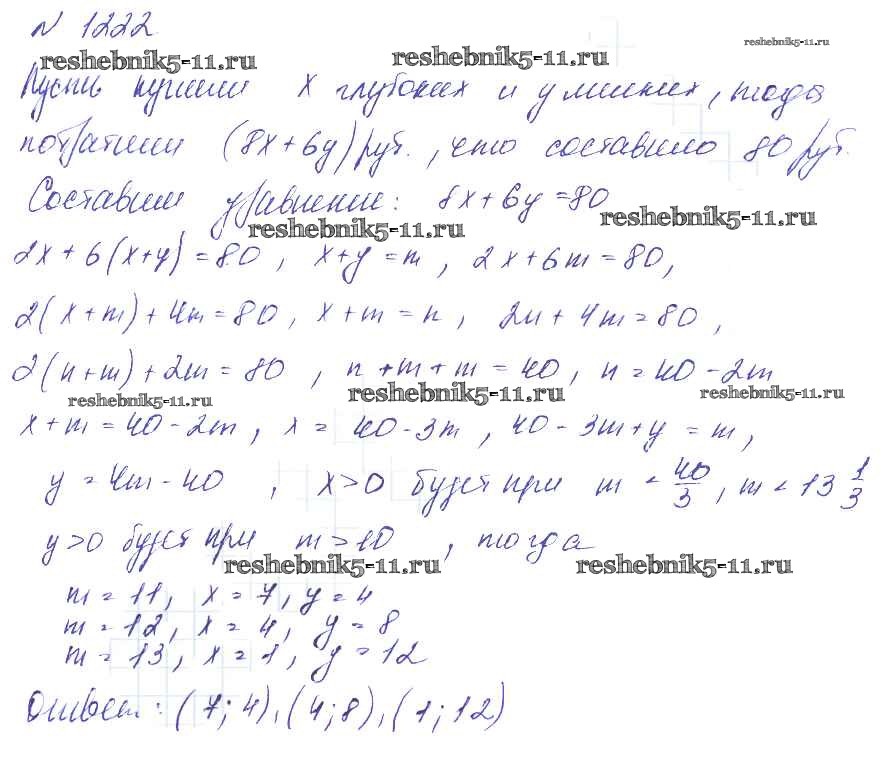 N 1222
reshebnik5-11.ru reshebnik5-11.ru reshebnik5-11.ru
Пусть купили x глубоких и y мелких, тогда
потратили (8x+6y) руб., что составило 80 руб.
Составим уравнение: 8x+6y=80
reshebnik5-11.ru reshebnik5-11.ru
2x+6(x+y)=80, x+y=m, 2x+6m=80,
2(x+m)+4m=80, x+m=n, 2n+4m=80,
2(n+m)+2m=80, n+m+m=40, n=40-2m
reshebnik5-11.ru reshebnik5-11.ru reshebnik5-11.ru
x+m=40-2m, x=40-3m, 40-3m+y=m,
y=4m-40, x>0 будет при m<40/3, m<13 1/3
y>0 будет при m>10, тогда
reshebnik5-11.ru reshebnik5-11.ru
m=11, x=7, y=4
m=12, x=4, y=8
m=13, x=1, y=12
Ответ: (7;4),(4;8),(1;12)